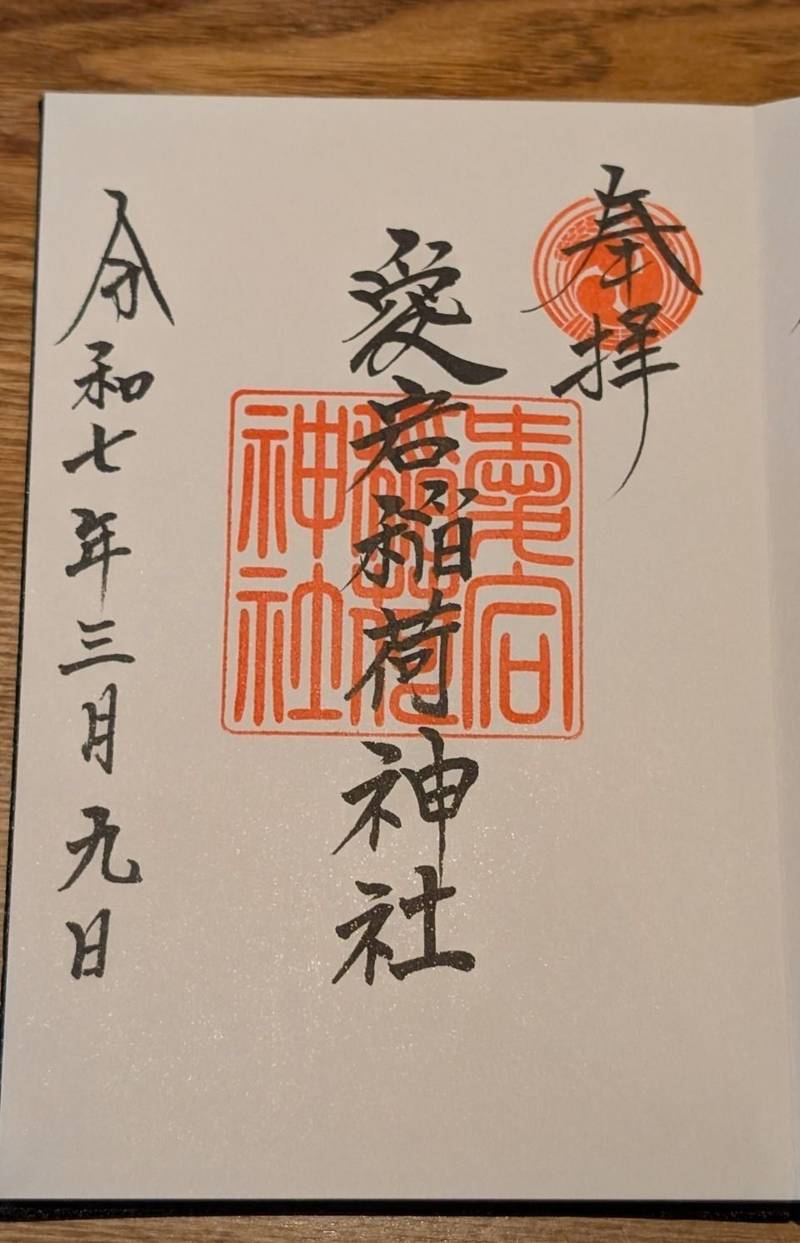 奉拝
愛宕稲荷神社
愛宕
稲荷
神社
令和七年三月九日